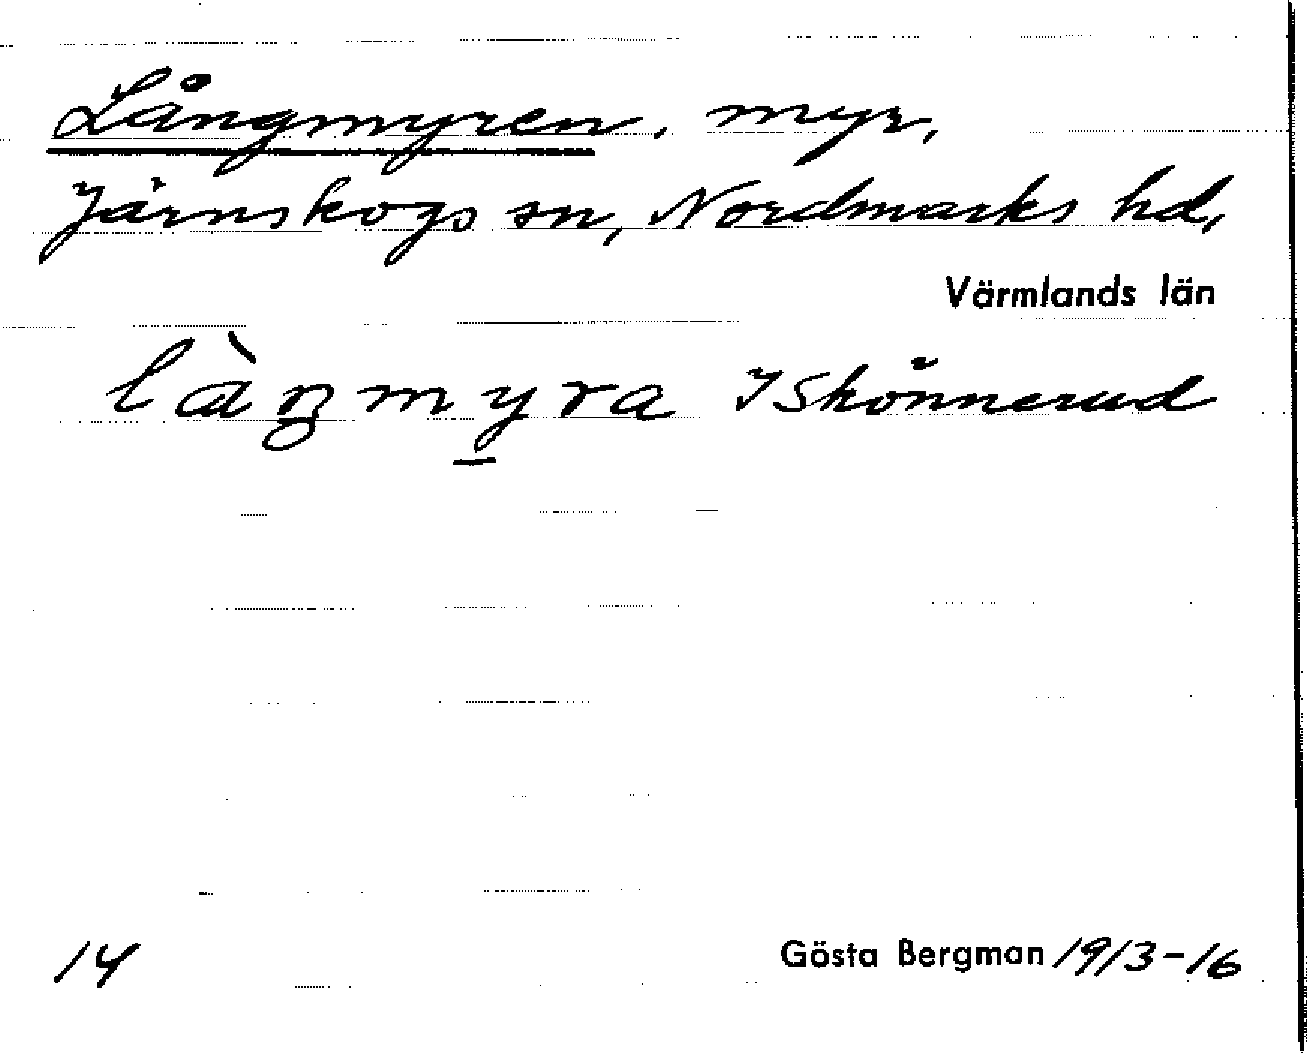 Långmyren, myr,
Järnskogs sn, Nordmarks hd,
Värmlands län
làŋmyra I Skönnerud
14
Gösta Bergman 1913-16